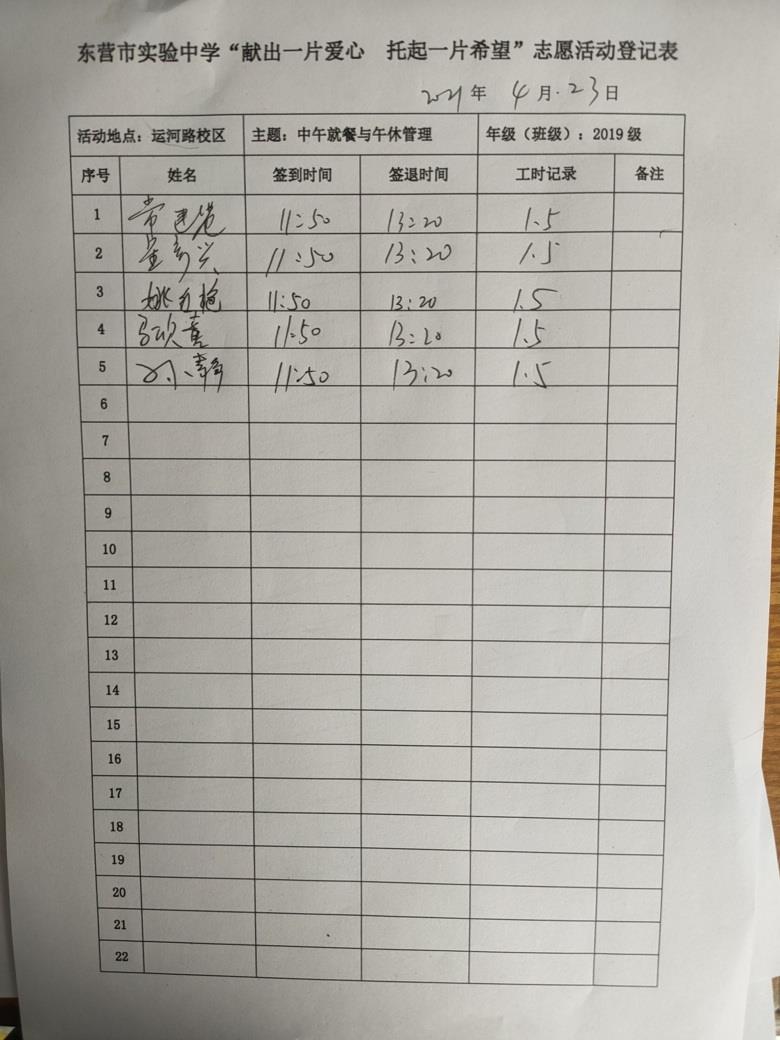 东营市实验中学“献出一片爱心 托起一片希望”志愿活动登记表
2021年 4月·23日
活动地点：运河路校区 主题：中午就餐与午休管理 年级（班级）：2019级
序号 姓名 签到时间 签退时间 工时记录 备注
1 常 11:50 13:20 1.5
2 11:50 13:20 1.5
3 姚 11:50 13:20 1.5
4 马欣喜 11:50 13:20 1.5
5 刘静 11:50 13:20 1.5
6
7
8
9
10
11
12
13
14
15
16
17
18
19
20
21
22